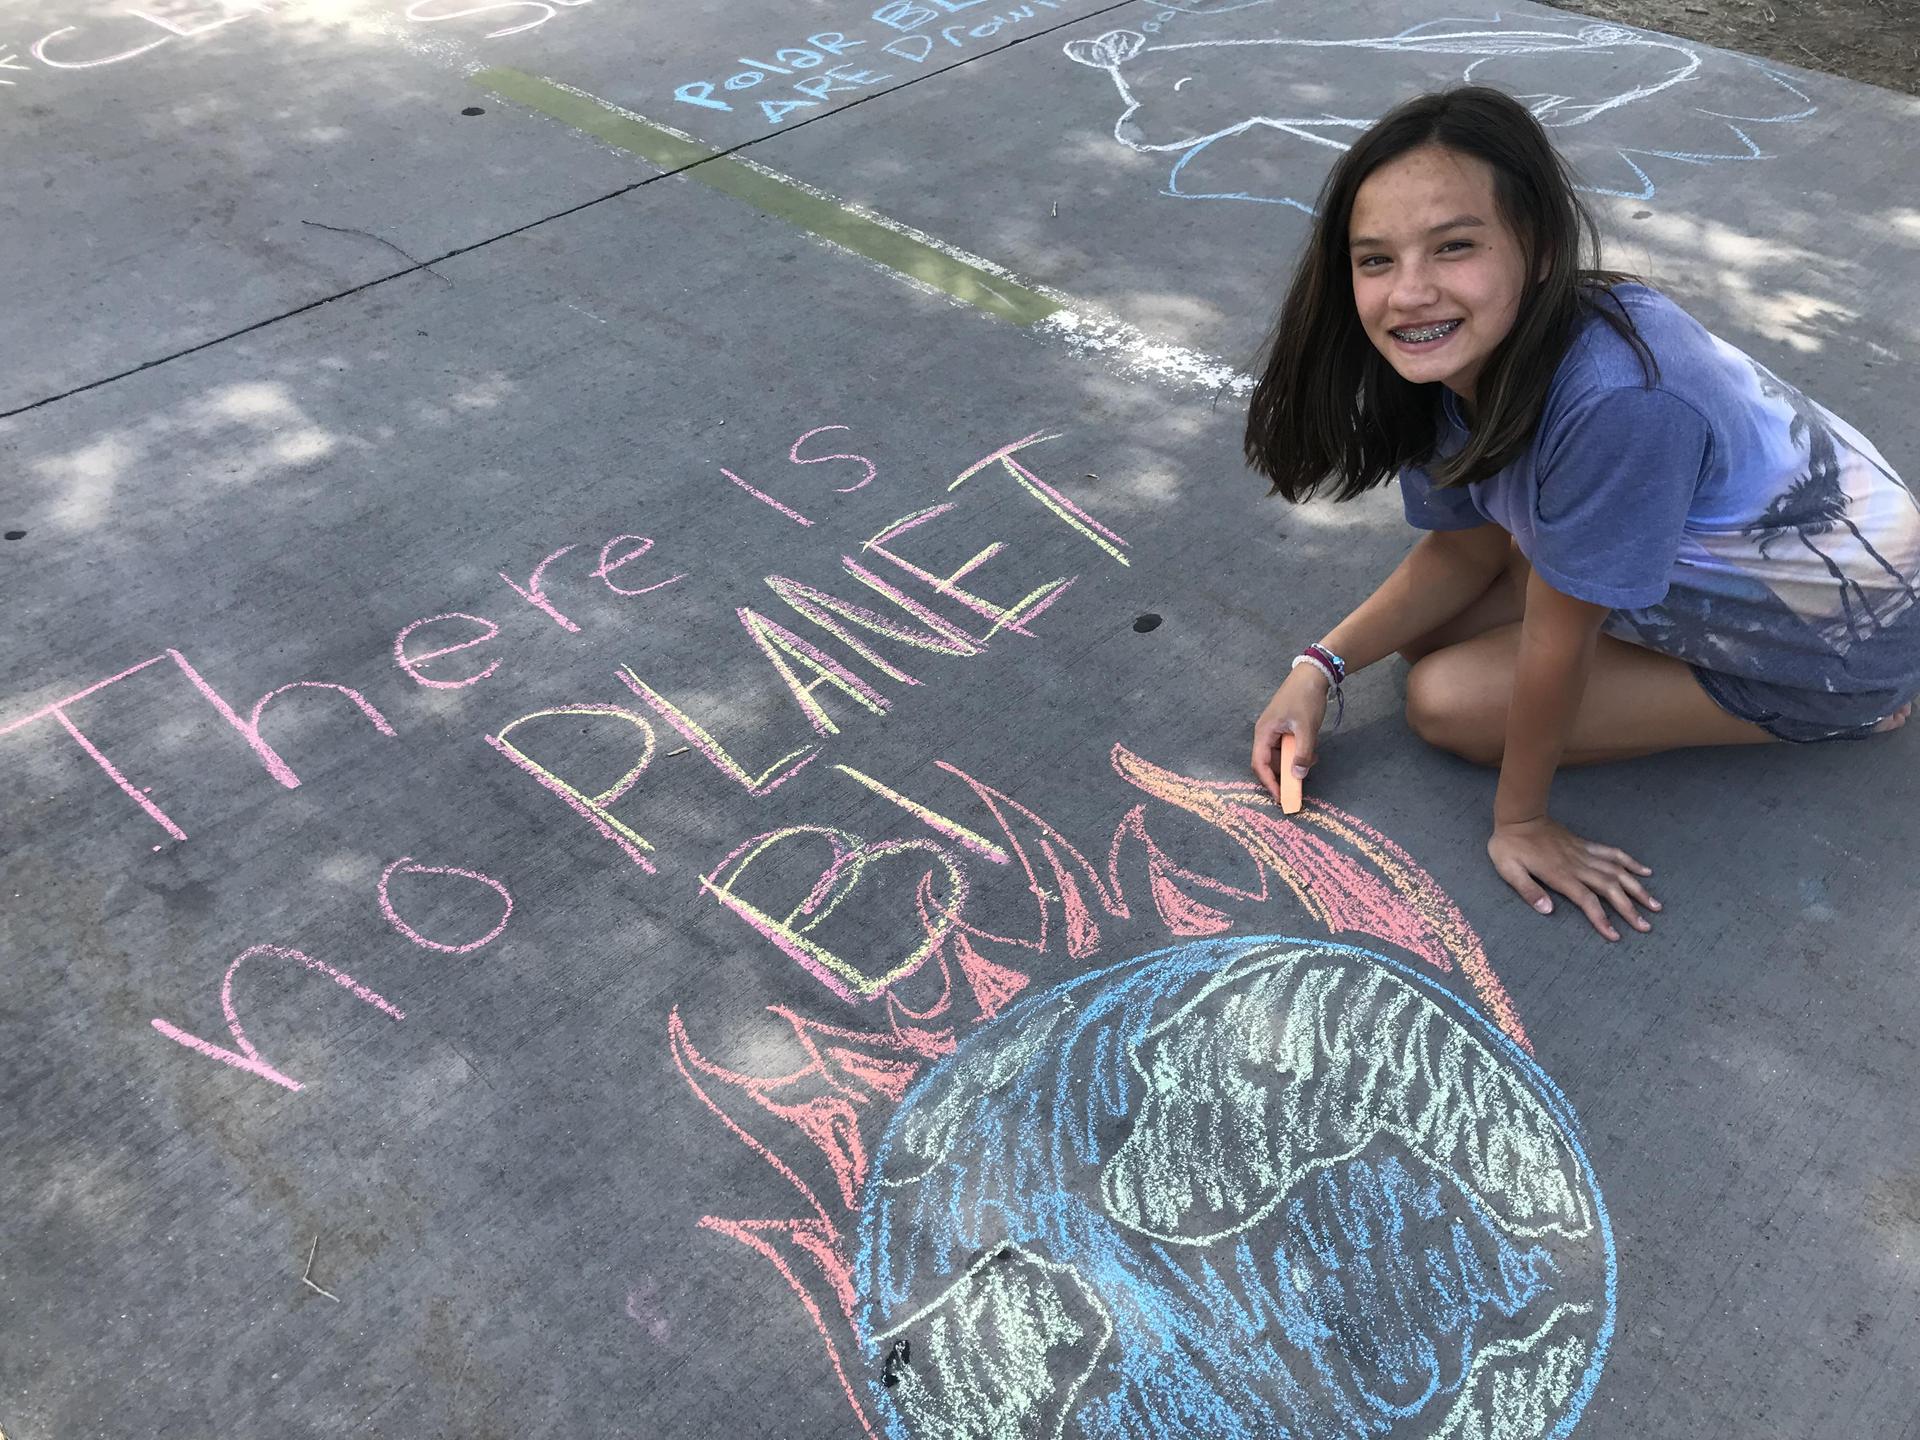 Polar
ARE Drown
There is
no PLANET
B!